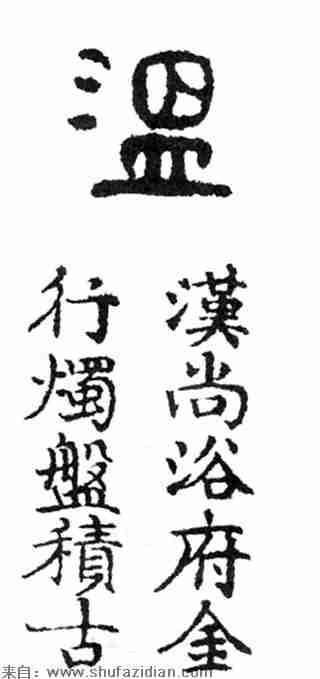 溫
漢尚浴府金
行燭盤積古
来自：www.shufazidian.com